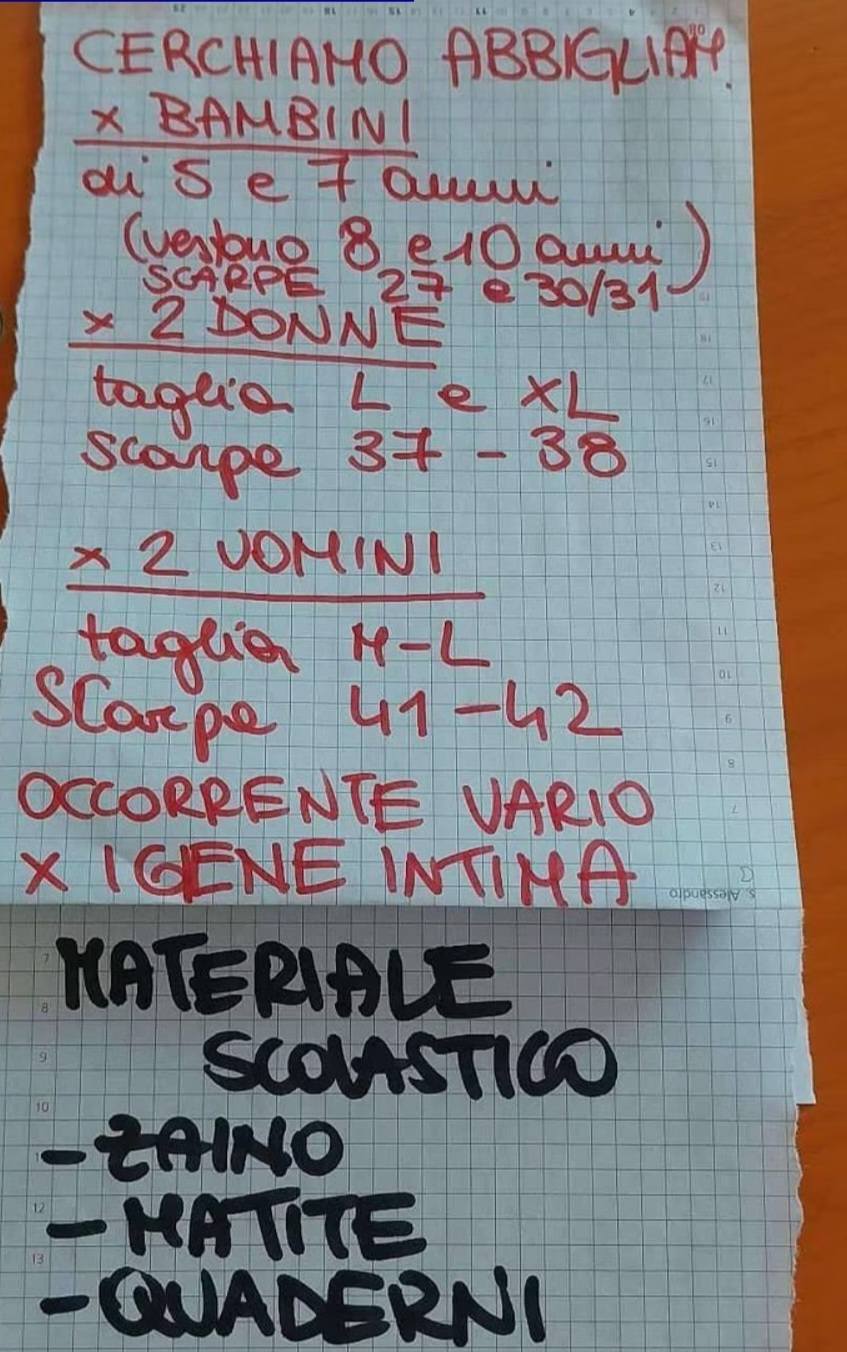 CERCHIAMO ABBIGLIAM.
x BAMBINI
di 5 e 7 anni
(vestono 8 e 10 anni)
SCARPE 27 e 30/31
x 2 DONNE
taglia L e XL
scarpe 37 - 38
x 2 UOMINI
taglia M-L
Scarpe 41-42
OCCORRENTE VARIO
X IGENE INTIMA
S. Alessandro
MATERIALE
SCOLASTICO
- ZAINO
- MATITE
- QUADERNI